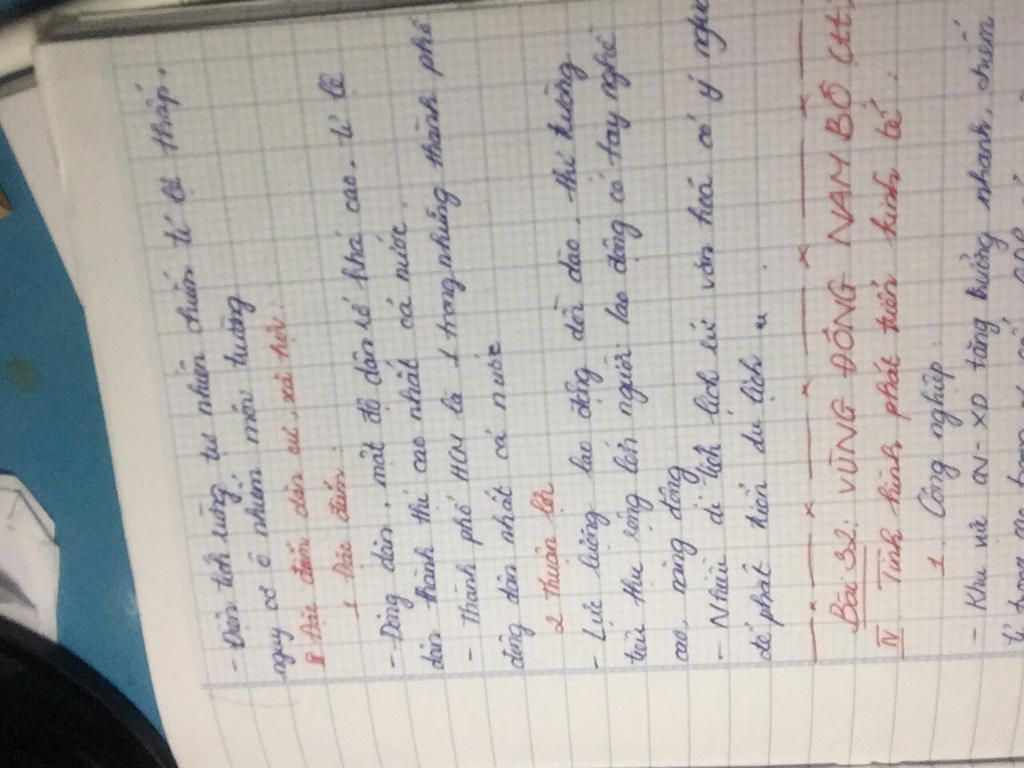 - Diện tích rừng tự nhiên chiếm tỉ lệ thấp.
nguy cơ ô nhiễm môi trường
Đặc điểm dân cư, xã hội.
1 Đặc điểm:
- Đông dân, mật độ dân số khá cao. tỉ lệ
dân thành thị cao nhất cả nước.
- Thành phố HCM là 1 trong những thành phố
đông dân nhất cả nước
2 thuận lợi
- Lực lượng lao động dồi dào, thị trường
tiêu thụ rộng lớn người lao động có tay nghề
cao, năng động
- Nhiều di tích lịch sử văn hoá có ý
để phát triển du lịch.
Bài 32: VÙNG ĐÔNG NAM BỘ (tt)
IV Tình hình phát triển kinh tế:
1. Công nghiệp.
- Khu vực CN-XD tăng trưởng nhanh, chiếm